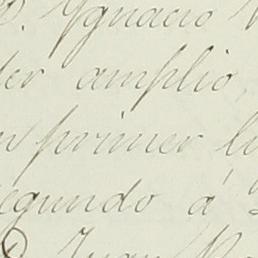 D. Ygnacio
der amplio
primer
segundo á
D. Juan